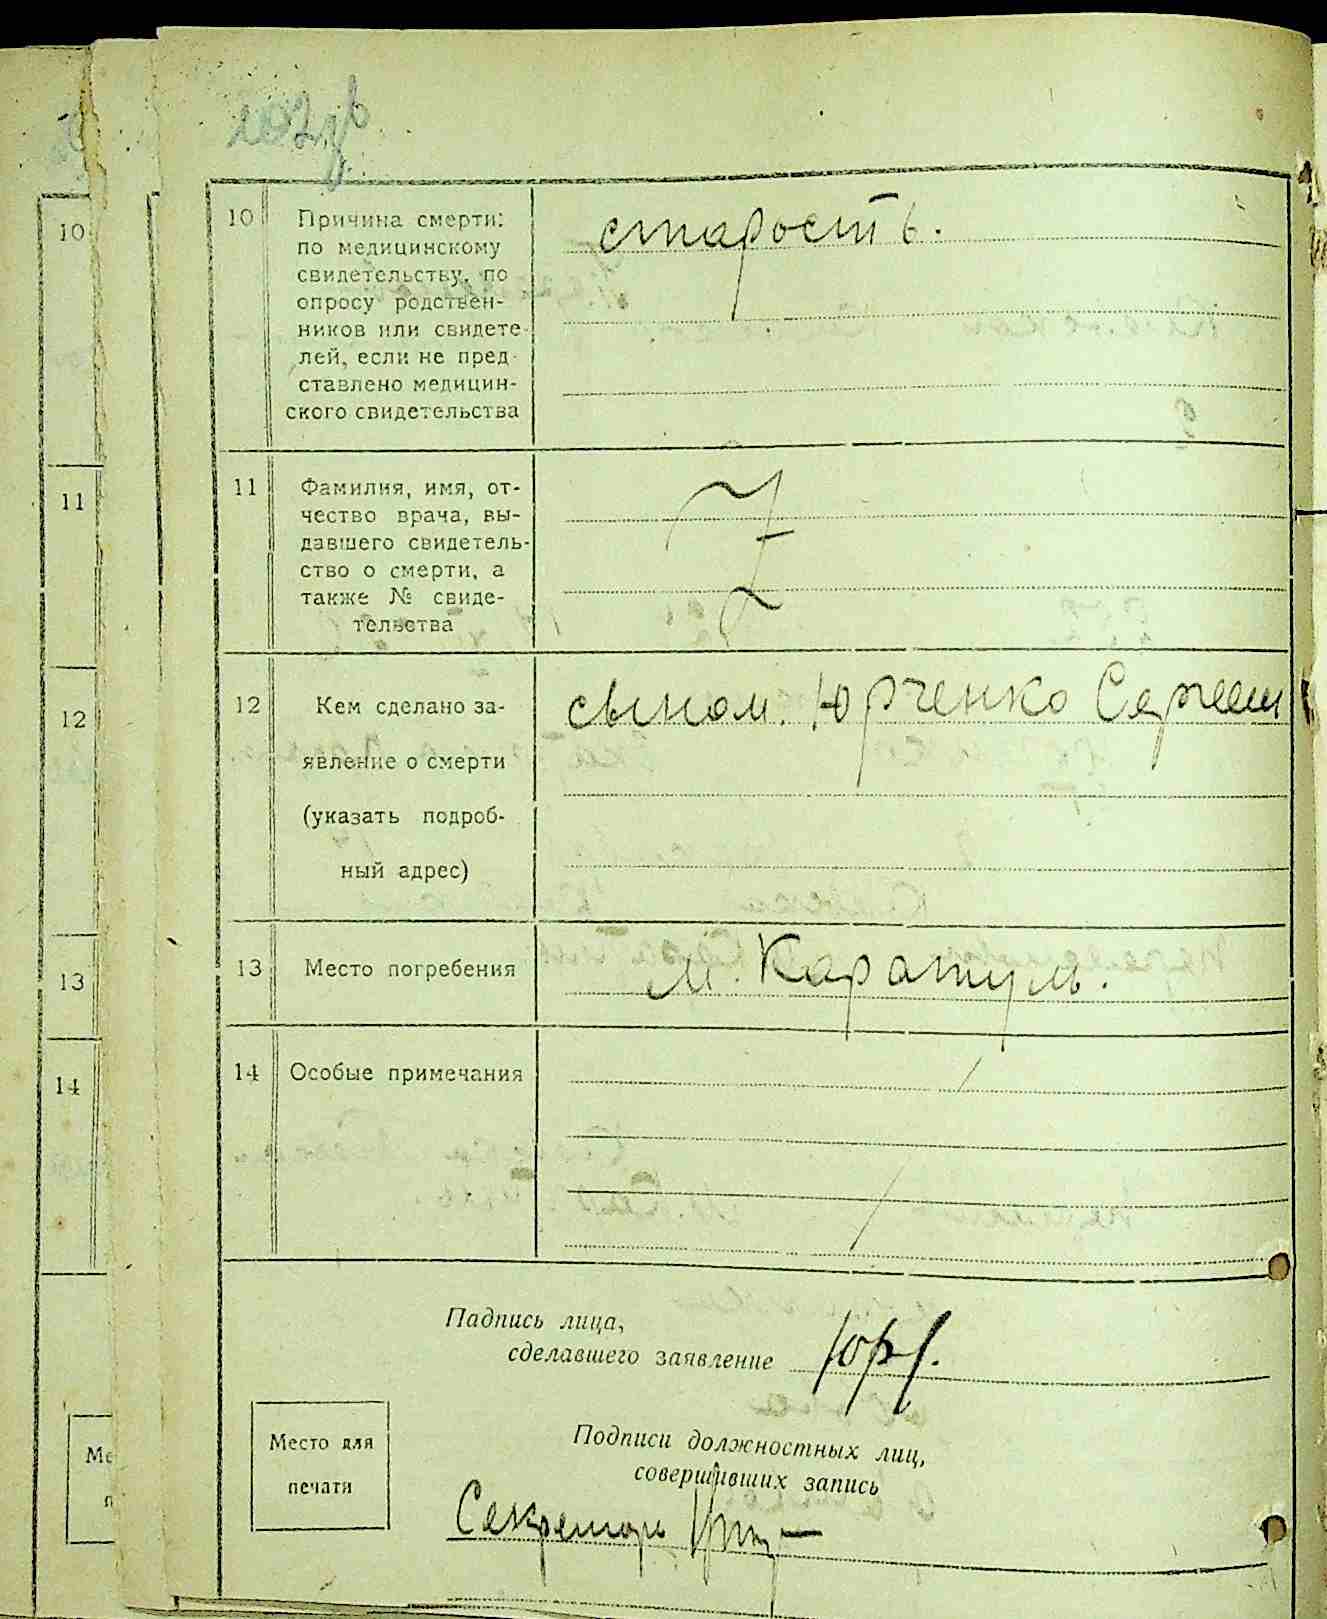 10
10 Причина смерти: старость.
по медицинскому
свидетельству, по
опросу родствен-
ников или свидете-
лей, если не пред-
ставлено медицин-
ского свидетельства
11
11 Фамилия, имя, от-
чество врача, вы-
давшего свидетель-
ство о смерти, а
также № свиде-
тельства
12
12 Кем сделано за- сыном. Юрченко Сергеем
явление о смерти
(указать подроб-
ный адрес)
13
13 Место погребения м. Каратуль.
14
14 Особые примечания
Падпись лица,
сделавшего заявление Юр
Место для
печати
Подписи должностных лиц,
совершивших запись
Секретарь